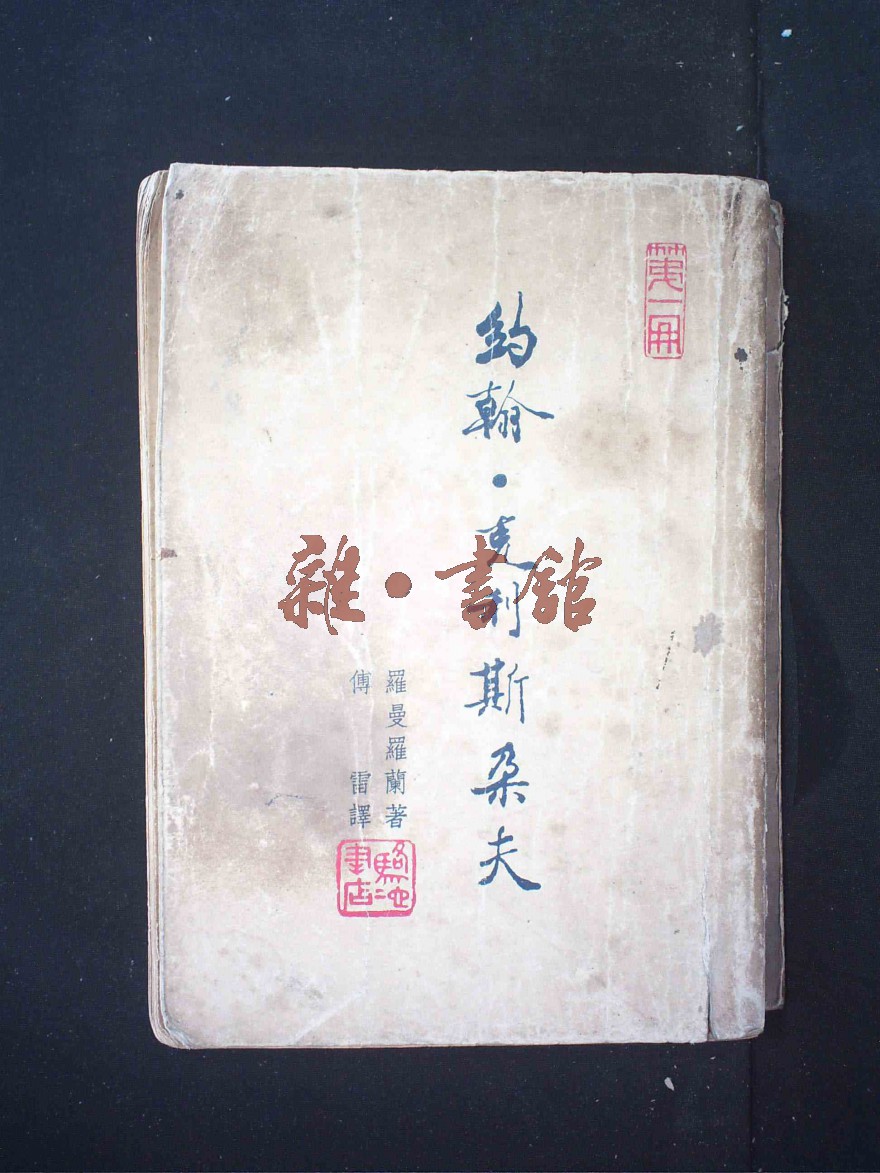 第一冊
約翰·克利斯朵夫
羅曼羅蘭著
傅雷譯
駱駝書店
雜·書館